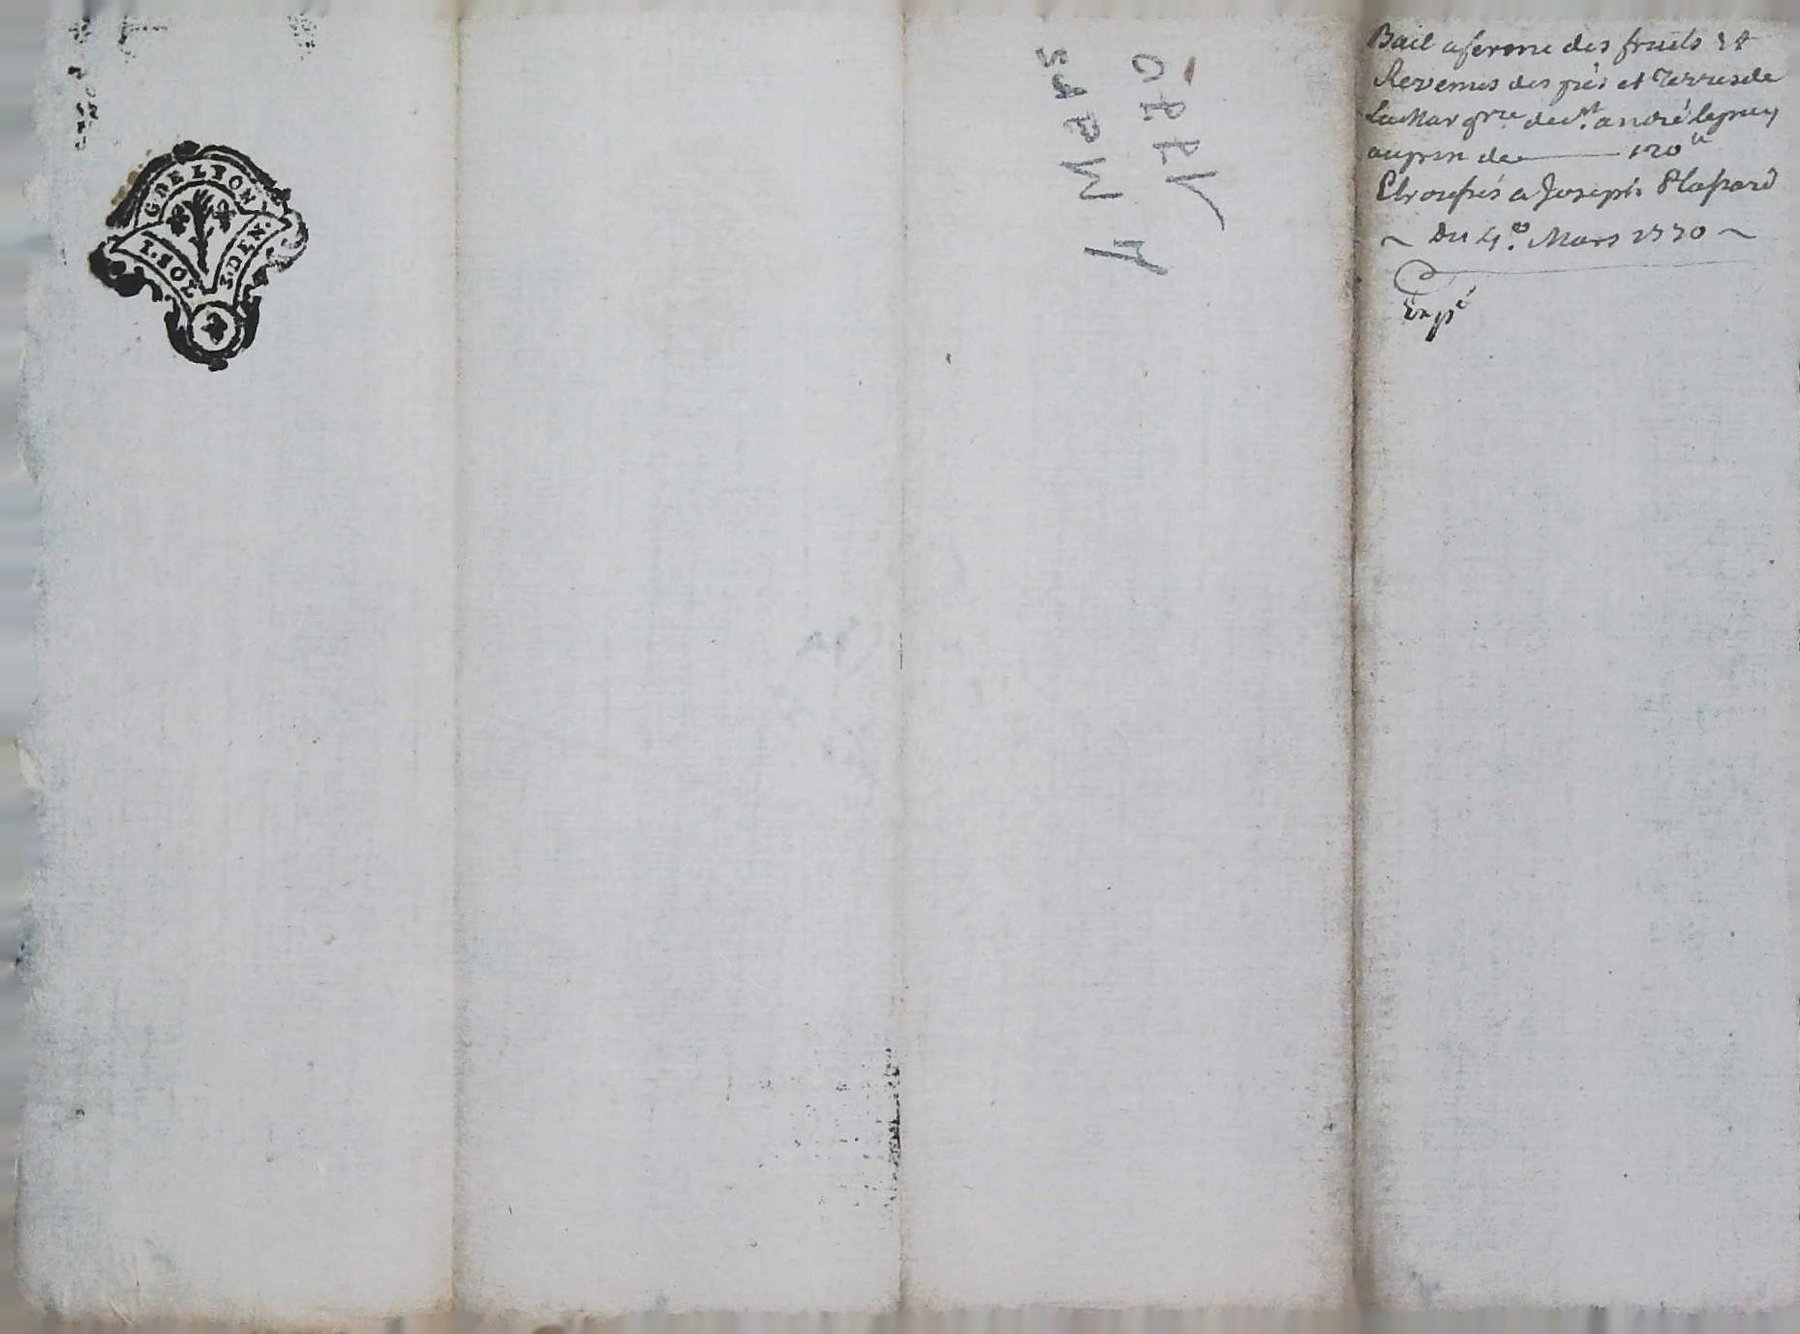 G. DE LYON
1. SOL
2. DEN.
4 Mars
1770
Bail a ferme des fruits &
Revenus des prés et Terres de
La Mar grie de st. andré
au prix de 120 ll
a Joseph Plassard
Du 4.e Mars 1770
Exp.é